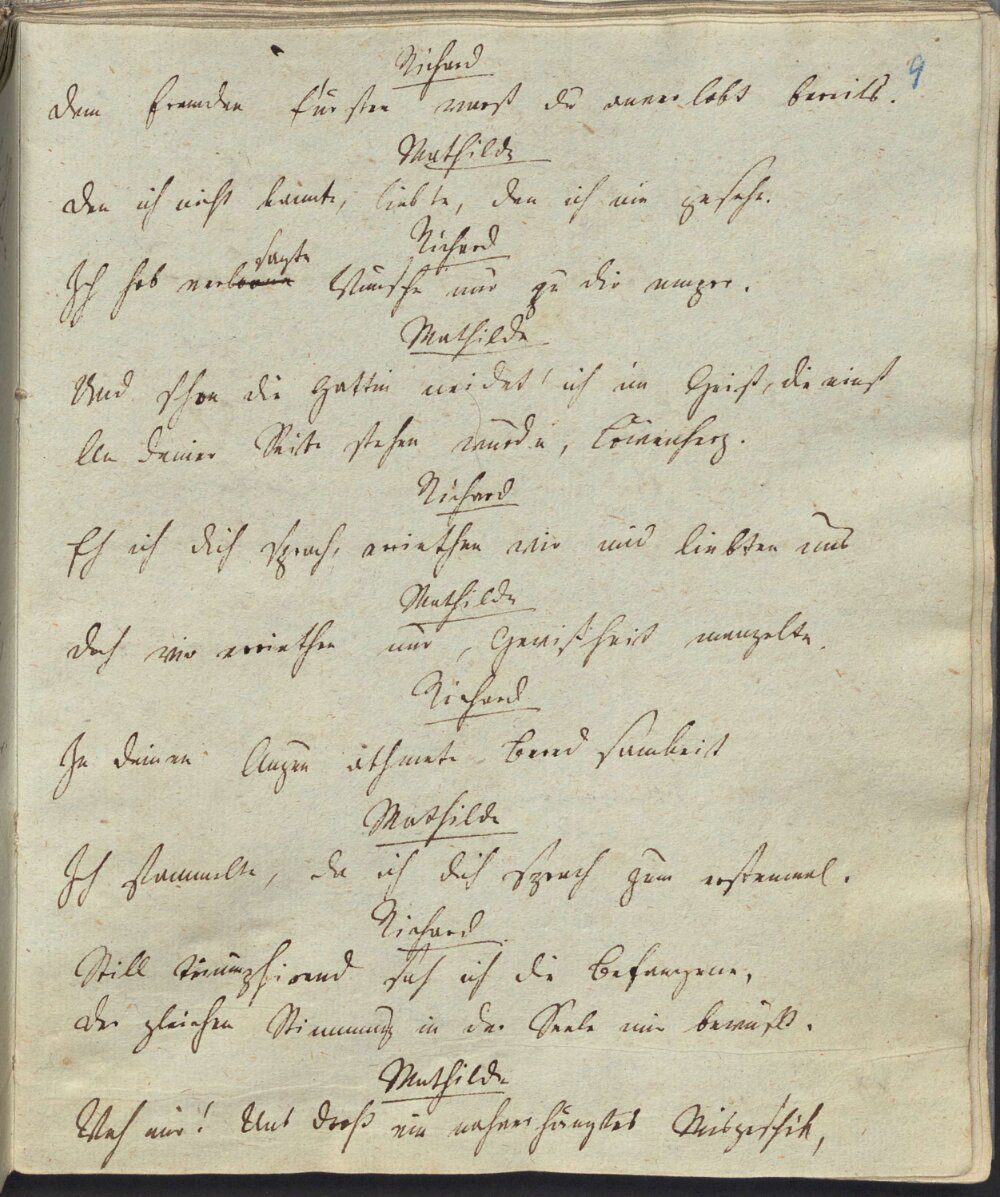 9
Richard
Dem fremden Fürsten warst du anverlobt bereits.
Mathilde
Den ich nicht kannte, liebte, den ich nie gesehn.
Richard
sagte
Ich hob verborgne Wünsche nur zu dir empor.
Mathilde
Und schon die Gattin neidet' ich im Geist, die einst
An deiner Seite stehen würde, Löwenherz.
Richard
Eh ich dich sprach, erriethen wir und liebten uns
Mathilde
Doch wir erriethen nur, Gewißheit mangelte.
Richard
In deinen Augen athmete Beredsamkeit
Mathilde
Ich stammelte, da ich dich sprach zum erstenmal.
Richard
Still triumphirend sah ich die Befangene,
Der gleichen Stimmung in der Seele mir bewußt.
Mathilde
Weh mir! Uns droht ein nahverhängtes Misgeschik,